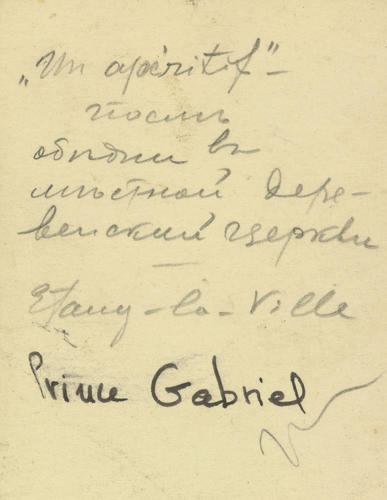 „Un apéritif”–
послѣ
обѣдни въ
мѣстной дере-
венский церкви
—
Etang-la-Ville
Prince Gabriel